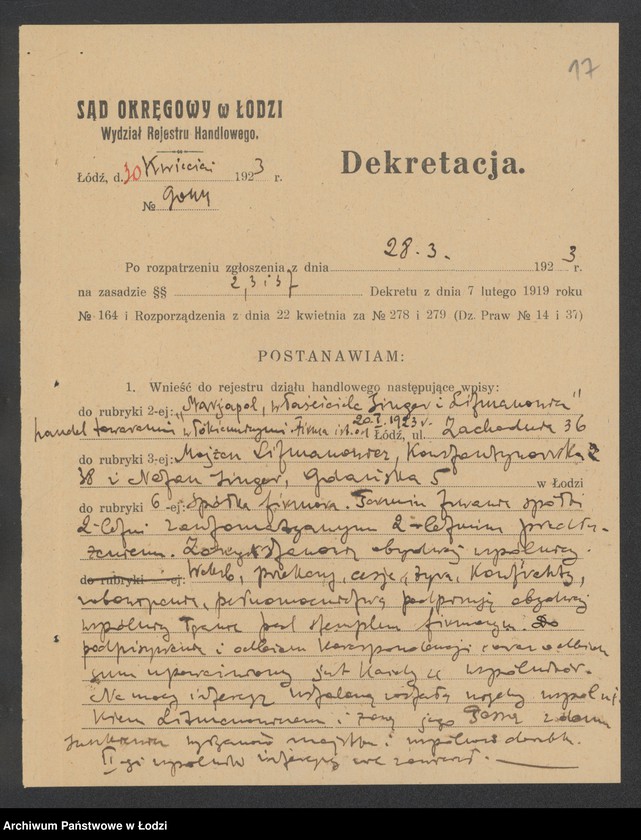 17
SĄD OKRĘGOWY w ŁODZI
Wydział Rejestru Handlowego.
Łódź, d. 10 Kwiecień 1923 r.
№
Dekretacja.
Po rozpatrzeniu zgłoszenia z dnia 28.3. 1923 r.
na zasadzie §§ 2, 3 i 37 Dekretu z dnia 7 lutego 1919 roku
№ 164 i Rozporządzenia z dnia 22 kwietnia za № 278 i 279 (Dz. Praw № 14 i 37)
POSTANAWIAM:
1. Wnieść do rejestru działu handlowego następujące wpisy:
do rubryki 2-ej: „Marjapol, właściciele Singer i Litmanowicz"
handel towarami włókienniczymi Firma istn. od 20.I.1923 r. Łódź, ul. Zachodnia 36
do rubryki 3-ej: Litmanowicz, Konstantynowska
38 i Singer, Gdańska 5 w Łodzi
do rubryki 6-ej: Spółka firmowa. Termin trwania spółki
2-letni z automatycznym 2-letnim przedłu-
żeniem. Zarząd stanowią obydwaj wspólnicy.
do rubryki -ej: Weksle, przekazy, cesje, żyra, kontrakty,
zobowiązania, pełnomocnictwa podpisują obydwaj
wspólnicy łącznie pod stemplem firmowym. Do
podpisywania i odbioru korespondencji oraz odbioru
sum upoważniony jest każdy ze wspólników.
Na mocy intercyzy ustaloną została między wspólni-
kiem Litmanowiczem i żoną jego z domu
wyłączność majątku i wspólność dorobku.
II-gi wspólnik intercyzy nie zawierał.
Archiwum Państwowe w Łodzi